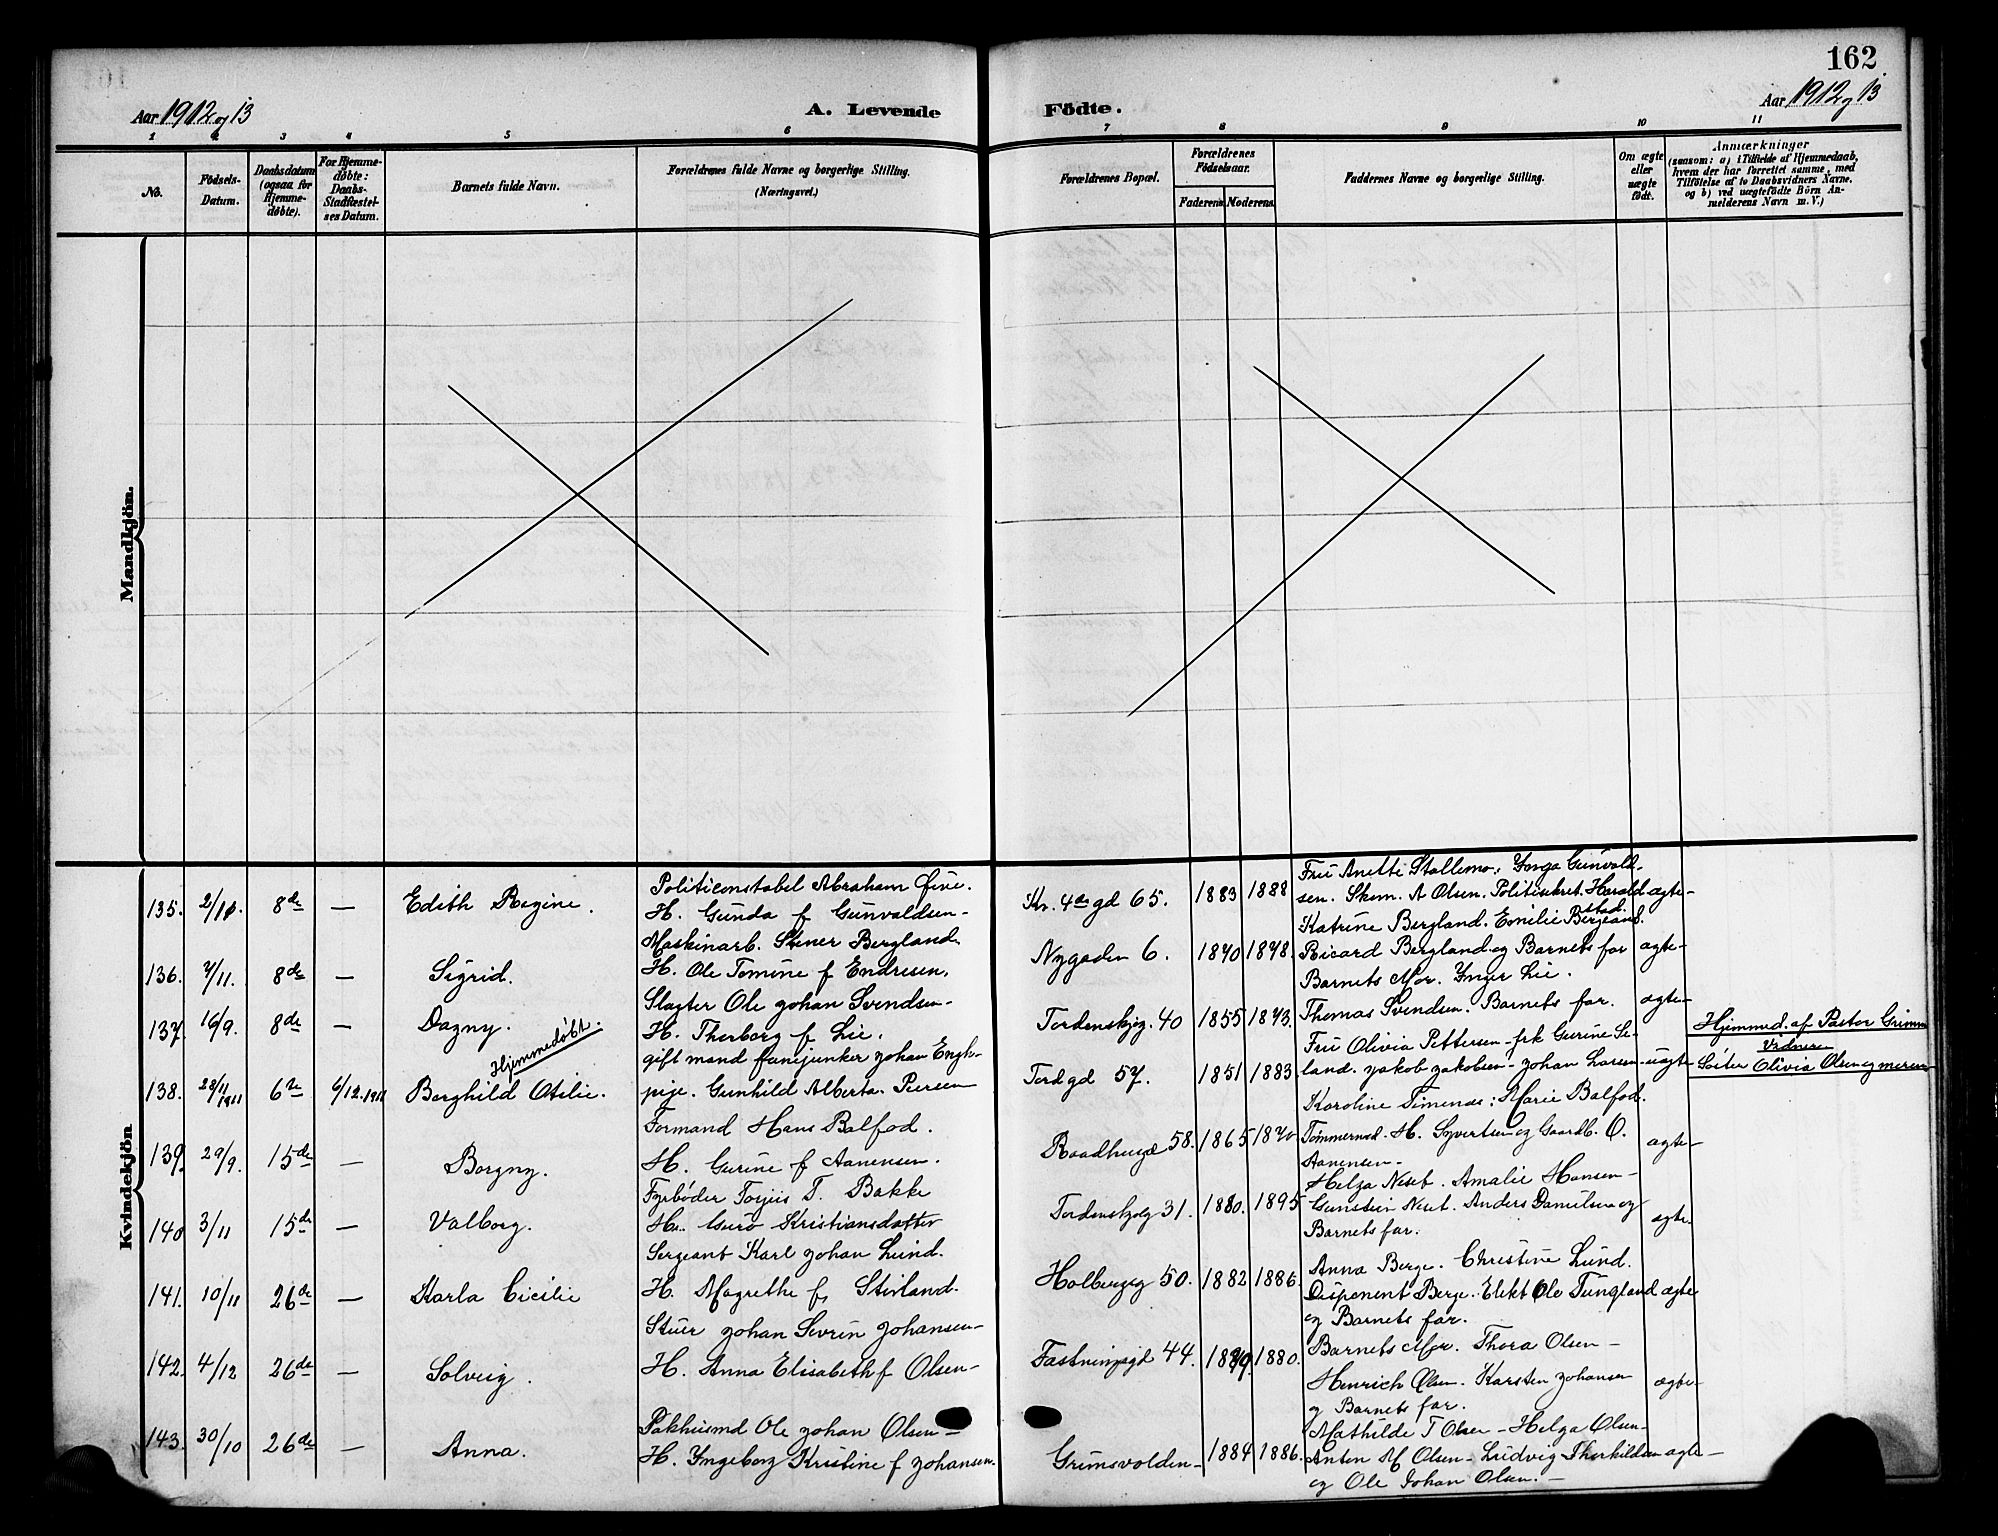 162
Aar 1912 og 13
A. Levende
Födte.
Aar 1912 og 13
1 2 3 4 5 6 7 8 9 10 11
No.
Födsels-Datum.
Daabsdatum (ogsaa for Hjemme-döbte).
For Hjemme-döbte: Daabs-Stadfæstel-ses Datum.
Barnets fulde Navn.
Forældrenes fulde Navne og borgerlige Stilling. (Næringsvei.)
Forældrenes Bopæl.
Forældrenes Födselsaar.
Faderens
Moderens
Faddernes Navne og borgerlige Stilling.
Om ægte eller uægte födt.
Anmærkninger
(saasom: a) i Tilfælde af Hjemmedaab, hvem der har forrettet samme, med Tilföielse af to Daabsvidners Navne. og b) ved uægtefödte Börn An-melderens Navn m. V.)
Mandkjön.
Kvindekjön
135. 2/11. 8de — Edith Regine.
Politiconstabel Abraham
H. Gunda f Gunvaldsen-
Kr. 4de gd 65. 1883 1888
Fru Anette Stallemo: Ynga Gunvald-
sen. Skom. A Olsen. Politisekret. Harald
stad.
ægte-
136. 7/11. 8de — Sigrid.
Maskinarb. Stener Bergland.
H. Ole Tomine f Endresen.
Nygaden 6. 1870 1878.
Katrine Bergland. Emilie Bergland.
Ricard Bergland og Barnets far
ægte-
137. 16/9. 8de — Dagny.
Slagter Ole Johan Svendsen-
H. Therborg f Lie.
Tordenskjg. 40 1855 1873.
Barnets Mor. Ynger Lie.
Thomas Svendsen. Barnets far.
ægte-
138. 28/11 1911 6te 6/12.1911 Borghild Otilie.
Hjemmedøbt
gift mand fanejunker Johan Engh-
pige. Gunhild Alberta. Persen
Tordgd 57. 1851 1883.
Fru Olivia Pettersen- frk Gurine Se-
land. Jakob Jakobsen- Johan Larsen-
uægte
Hjemmed. af Pastor Grimm
Vidner
Søster Olivia Olsen og moren-
139. 29/9. 15de — Borgny.
Formand Hans Balfod.
H. Gurine f Aanensen.
Raadhusgd 58. 1865 1870
Karoline Timenes: Marie Balfod.
Tømmermd. H. Syvertsen og Gaardb. O.
Aanensen-
ægte-
140 3/11 15de — Valborg.
Fyrbøder Torjus T. Bakke
H.. Guro Kristiansdatter
Tordenskjolg 31. 1880. 1895
Helga Neset. Amalie Hansen-
Gunstein Neset. Anders Danielsen og
Barnets far.
ægte.
141. 10/11 26de — Karla Cicilie
Sergeant Karl Johan Lund.
H. Magrethe f. Stirland.
Holbergsg 50. 1882 1886.
Anna Berge. Christine Lund.
Disponent Berge. Elekt Ole Tungland
og Barnets far.
ægte
142. 4/12 26de — Solveig.
Stuer Johan Sevrin Johansen-
H. Anna Elisabeth f Olsen-
Fæstningsgd 44. 1879. 1880.
Barnets Mor. Thora Olsen-
Henrich Olsen. Karsten Johansen
og Barnets far.
ægte-
143. 30/10 26de — Anna.
Pakhusmd Ole Johan Olsen-
H. Yngeborg Kristine f Johansen.
Grimsvolden- 1884 1886.
Mathilde T Olsen- Helga Olsen-
Anten M Olsen- Ludvig Therkildsen
og Ole Johan Olsen.-
ægte-